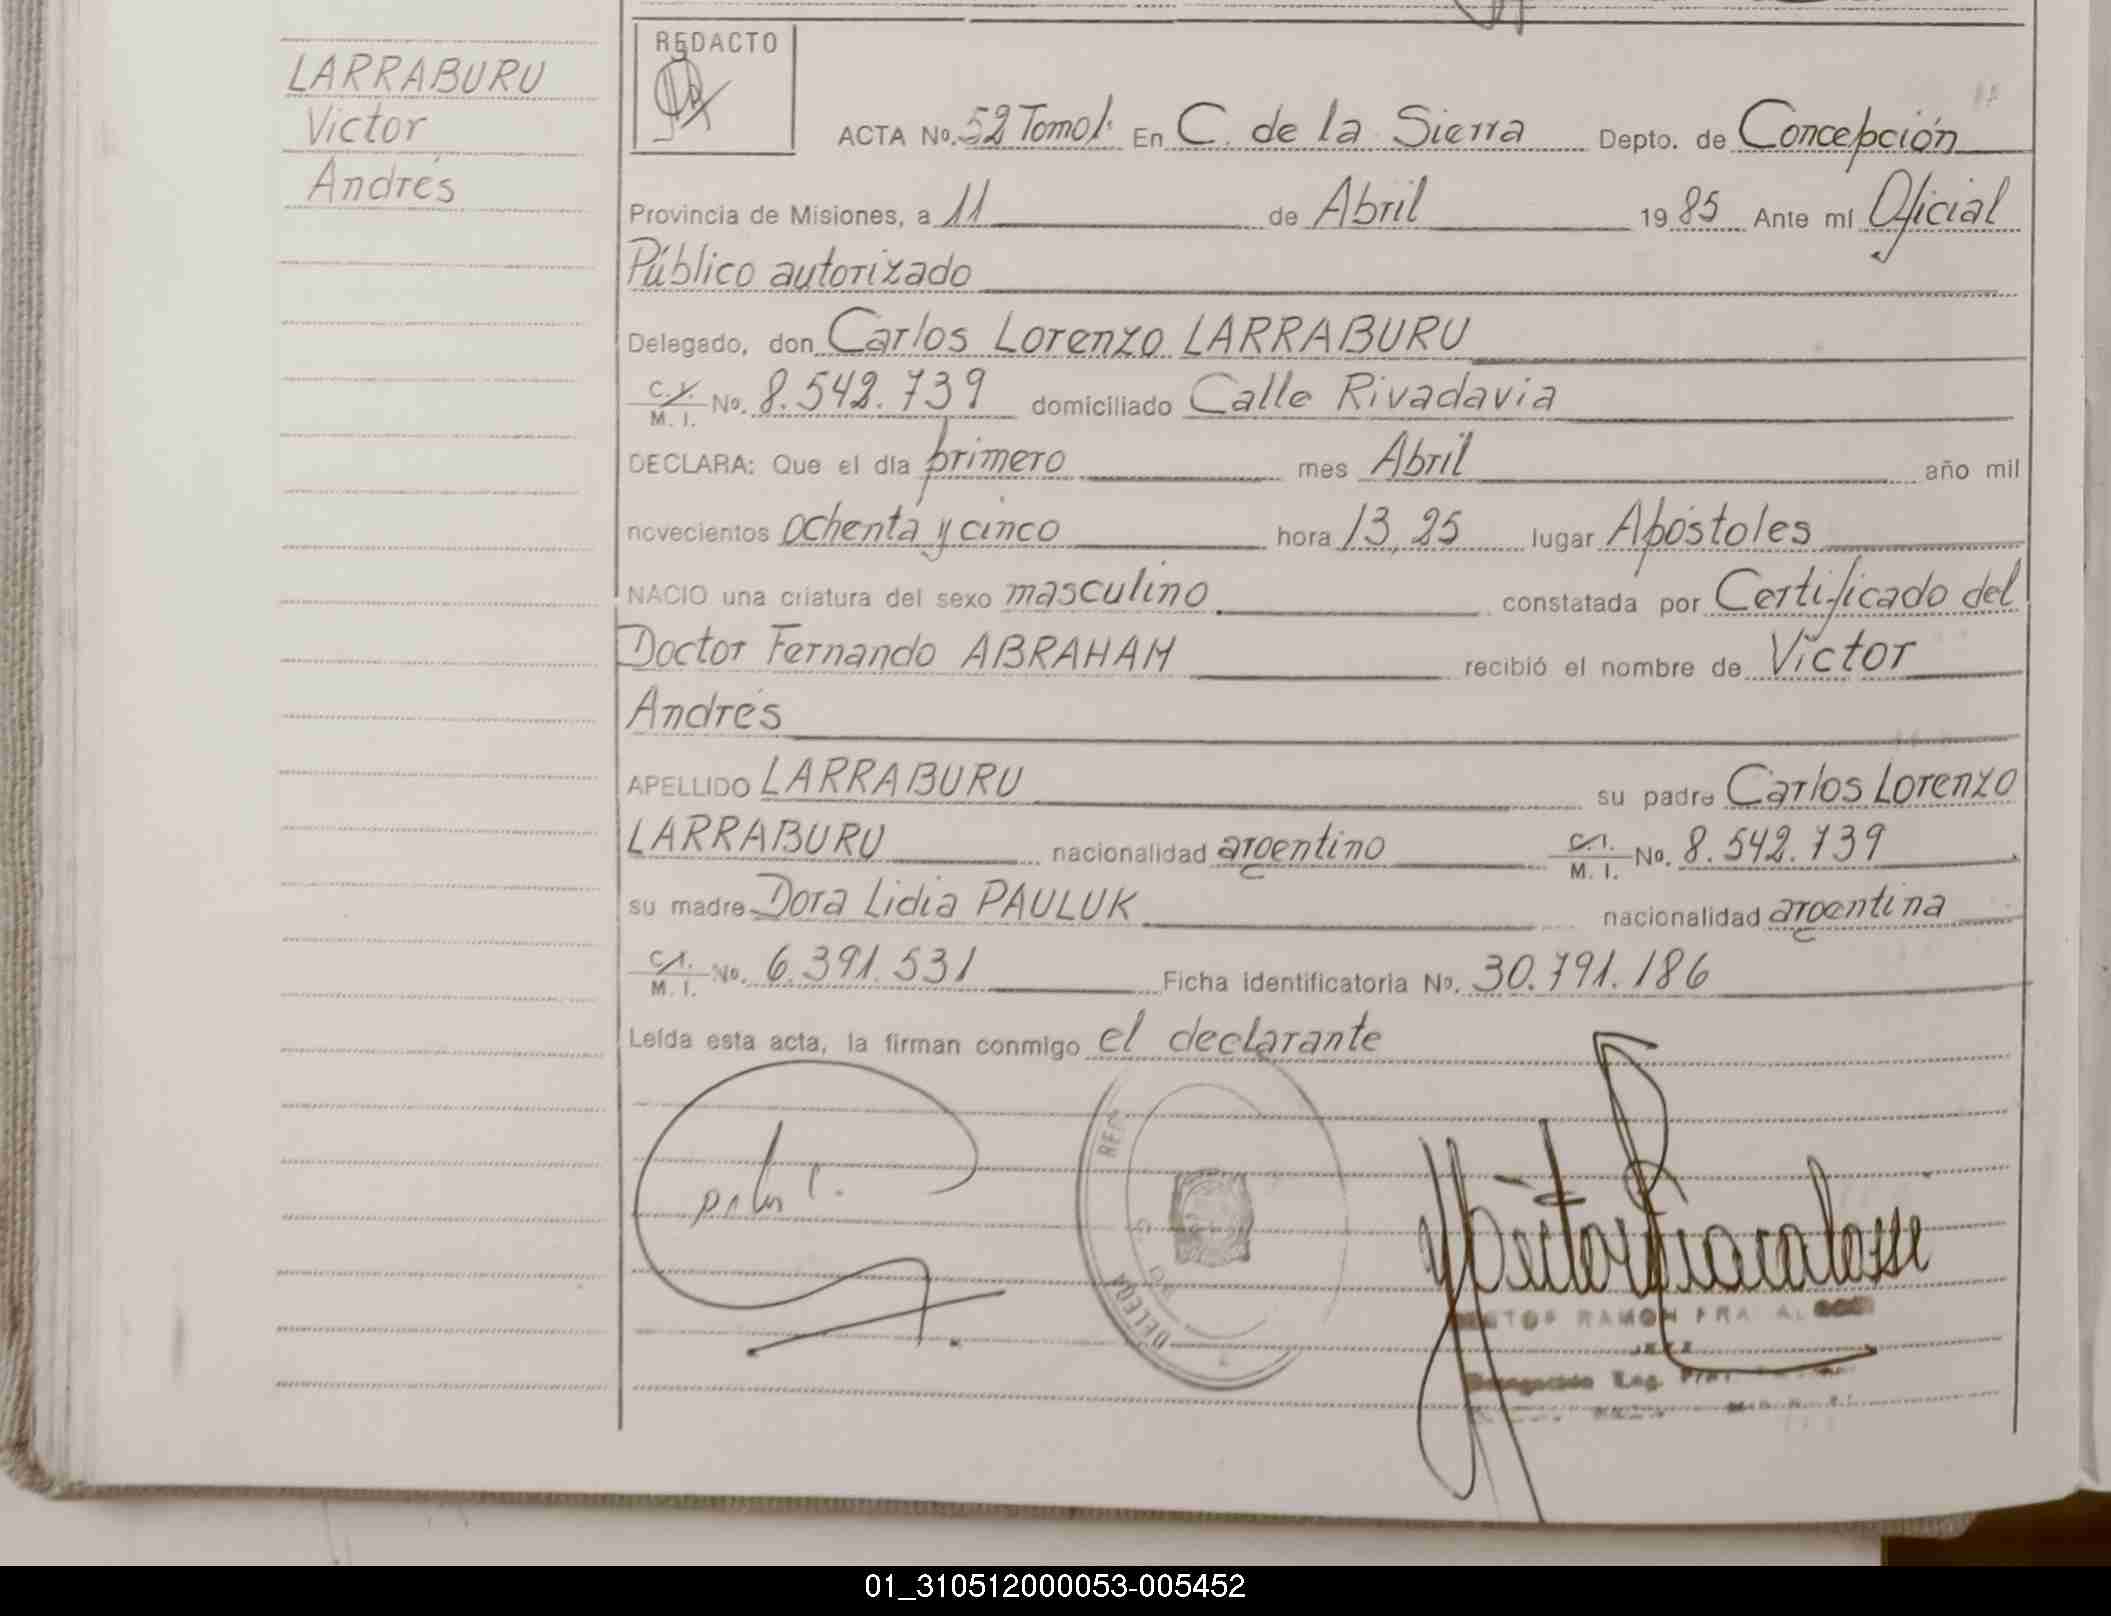 LARRABURU
Víctor
Andrés
REDACTO
ACTA No. 52 Tomo I. En C. de la Sierra Depto. de Concepción
Provincia de Misiones, a 11 de Abril 1985 Ante mí Oficial
Público autorizado
Delegado, don Carlos Lorenzo LARRABURU
C.I. M. I. No. 8.542.739 domiciliado Calle Rivadavia
DECLARA: Que el día primero mes Abril año mil
novecientos ochenta y cinco hora 13,25 lugar Apóstoles
NACIO una criatura del sexo masculino constatada por Certificado del
Doctor Fernando ABRAHAM recibió el nombre de Víctor
Andrés
APELLIDO LARRABURU su padre Carlos Lorenzo
LARRABURU nacionalidad argentino C.I. M. I. No. 8.542.739
su madre Dora Lidia PAULUK nacionalidad argentina
C.I. M. I. No. 6.391.531 Ficha identificatoria No. 30.791.186
Leída esta acta, la firman conmigo el declarante
RAMON
JEFE
01_310512000053-005452